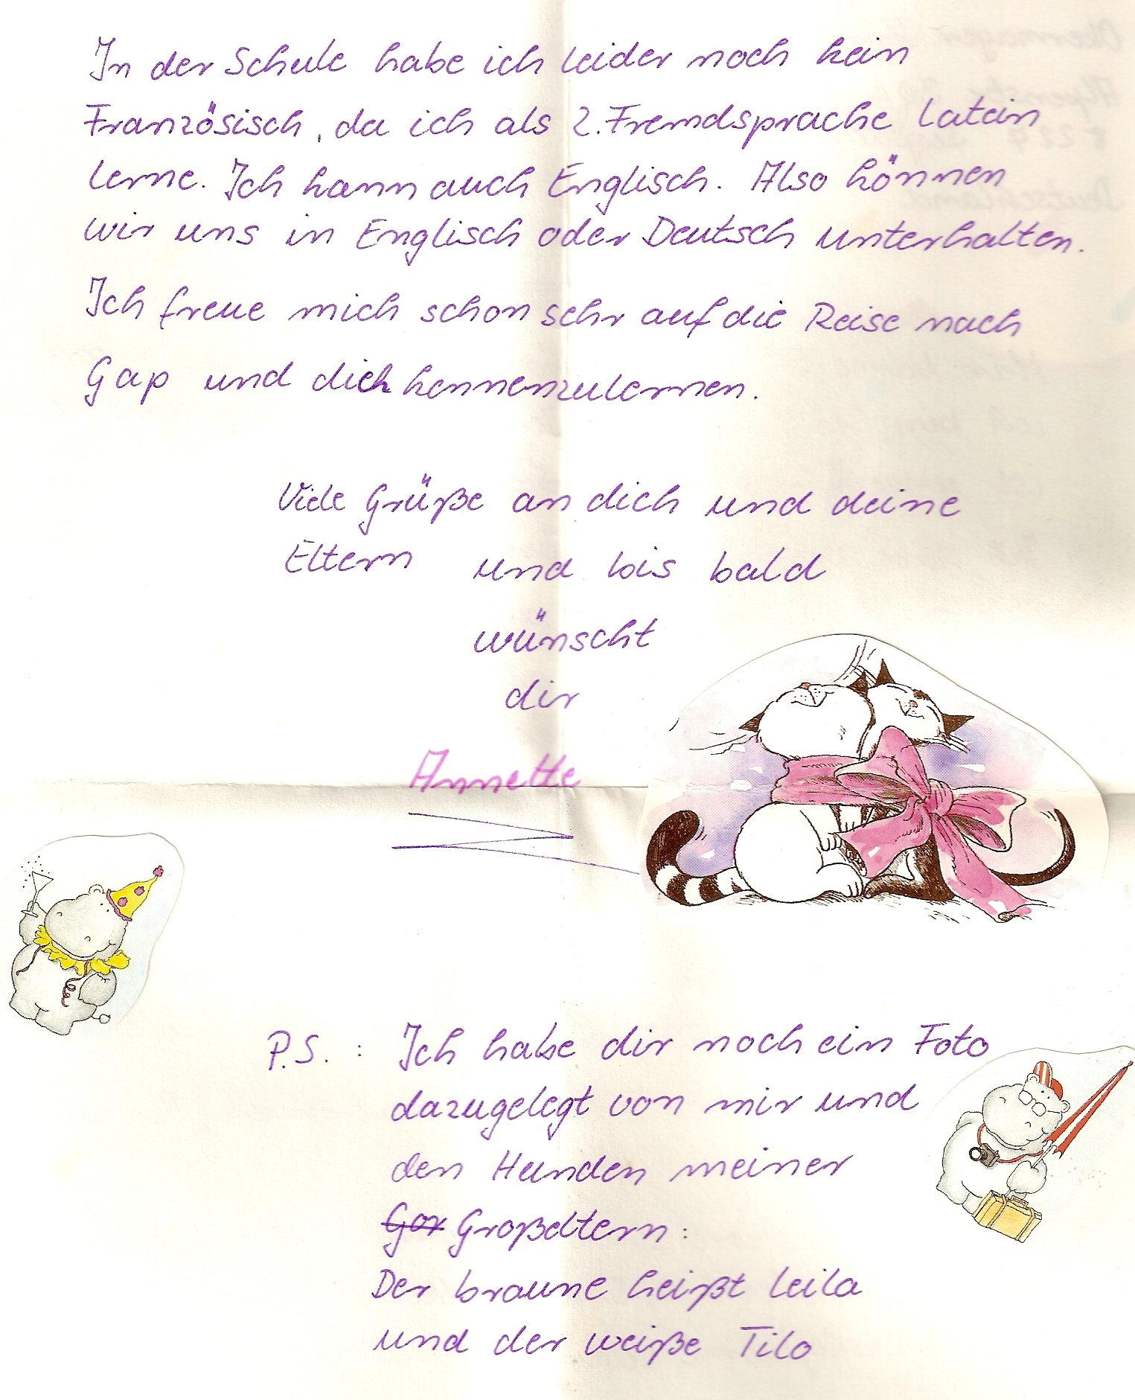 In der Schule habe ich leider noch kein
Französisch, da ich als 2. Fremdsprache Latein
lerne. Ich kann auch Englisch. Also können
wir uns in Englisch oder Deutsch unterhalten.
Ich freue mich schon sehr auf die Reise nach
Gap und dich kennenzulernen.
Viele Grüße an dich und deine
Eltern und bis bald
wünscht
dir
Annette
P.S. : Ich habe dir noch ein Foto
dazugelegt von mir und
den Hunden meiner
Gor Großeltern:
Der braune heißt Leila
und der weiße Tilo